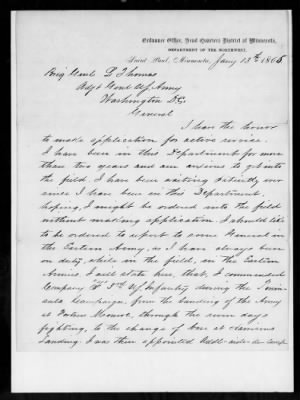 Ordnance Office, Head Quarters District of Minnesota,
DEPARTMENT OF THE NORTHWEST,
Saint Paul, Minnesota, Jany 13th 1865
Brig Genl L Thomas
Adjt Genl U.S. Army
Washington D.C.
General
I have the honor
to make application for active service.
I have been in this Department for more
than two years and am anxious to get into
the field. I have been waiting patiently ever
since I have been in this Department,
hoping I might be ordered into the field
without making application. I should like
to be ordered to report to some General in
the Eastern Army, as I have always been
on duty, while in the field, in the Eastern
Armies. I will state here, that, I commanded
Company "F" U.S. Infantry during the Penin-
sula Campaign, from the landing of the Army
at Fortress Monroe, through the seven days
fighting, to the change of base at Harrisons
Landing. I was then appointed Addl. aide-de-camp